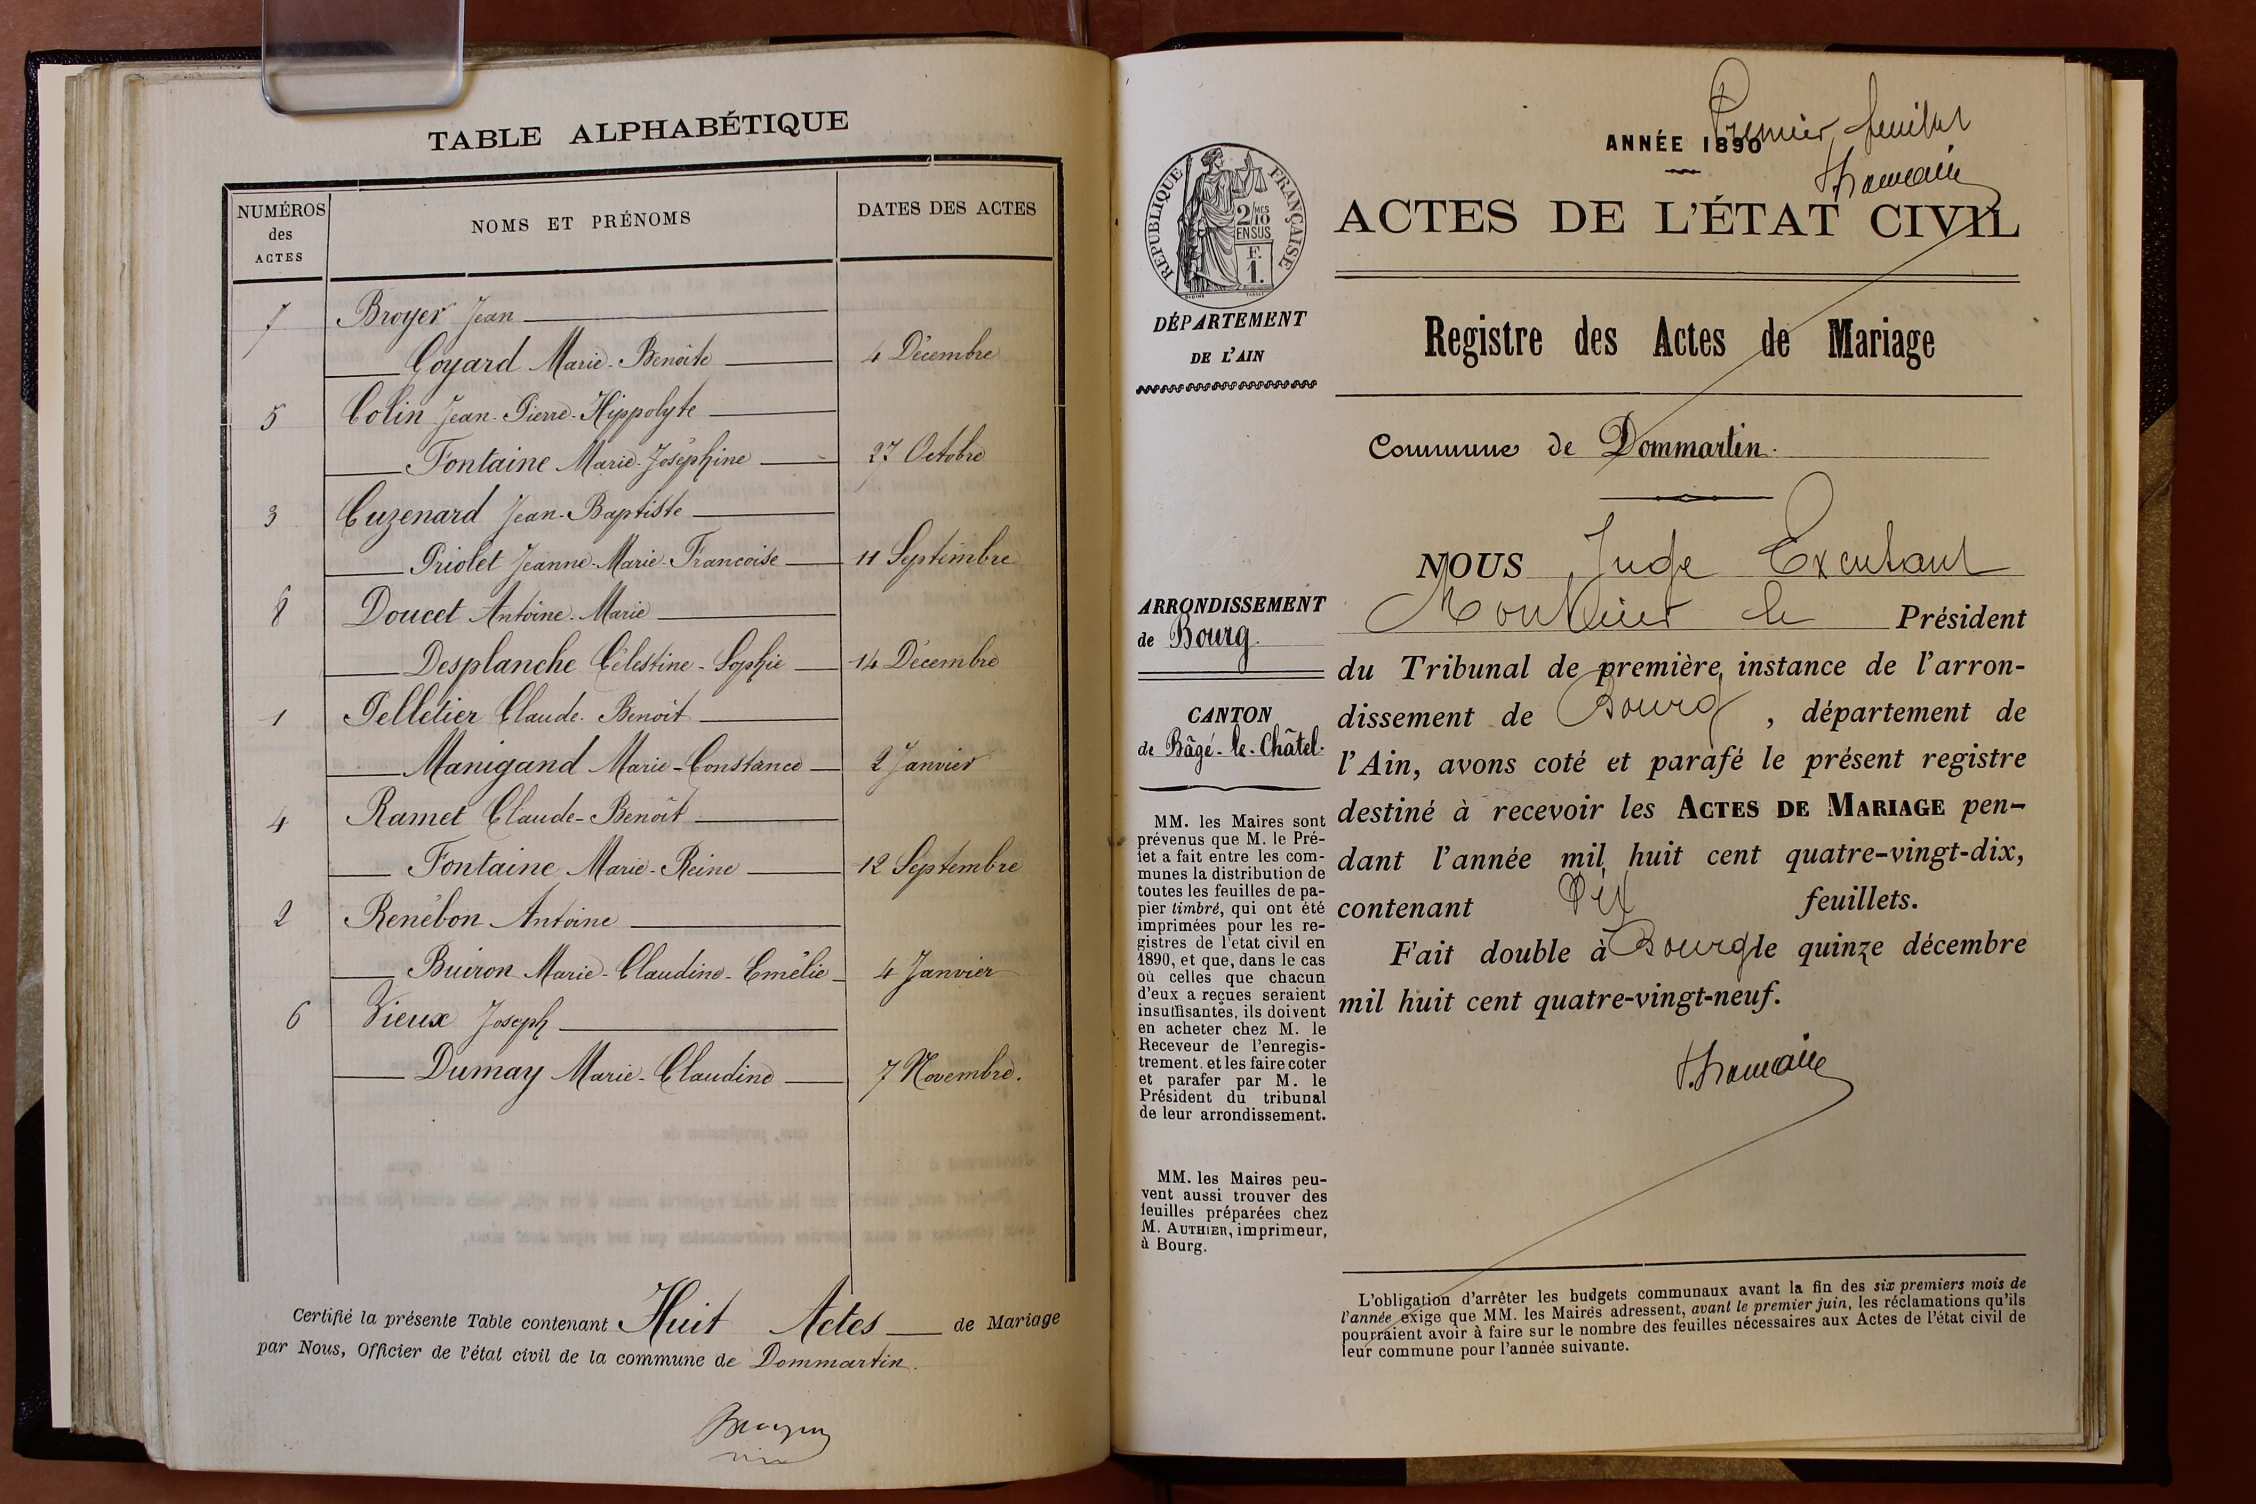 TABLE ALPHABÉTIQUE
NUMÉROS des ACTES
NOMS ET PRÉNOMS
DATES DES ACTES
7 Broyer Jean
Goyard Marie-Benoîte 4 Décembre
5 Colin Jean-Pierre-Hippolyte
Fontaine Marie-Joséphine 27 Octobre
3 Cuzenard Jean-Baptiste
Priolet Jeanne-Marie-Francoise 11 Septembre
8 Doucet Antoine-Marie
Desplanche Célestine-Sophie 14 Décembre
1 Pelletier Claude-Benoit
Manigand Marie-Constance 2 Janvier
4 Ramet Claude-Benoît
Fontaine Marie-Reine 12 Septembre
2 Renébon Antoine
Buiron Marie-Claudine-Emélie 4 Janvier
6 Vieux Joseph
Dumay Marie-Claudine 7 Novembre.
Certifié la présente Table contenant Huit Actes de Mariage
par Nous, Officier de l'état civil de la commune de Dommartin.
Premier feuillet
ANNÉE 1890
ACTES DE L'ÉTAT CIVIL
RÉPUBLIQUE FRANÇAISE
2/10 MES
EN SUS
F.
1.
DÉPARTEMENT
DE L'AIN
Registre des Actes de Mariage
Commune de Dommartin.
ARRONDISSEMENT
de Bourg.
CANTON
de Bâgé-le-Châtel.
NOUS Juge
le Président
du Tribunal de première instance de l'arron-
dissement de Bourg, département de
l'Ain, avons coté et parafé le présent registre
destiné à recevoir les ACTES DE MARIAGE pen-
dant l'année mil huit cent quatre-vingt-dix,
contenant Dix feuillets.
Fait double à Bourg le quinze décembre
mil huit cent quatre-vingt-neuf.
MM. les Maires sont
prévenus que M. le Pré-
fet a fait entre les com-
munes la distribution de
toutes les feuilles de pa-
pier timbré, qui ont été
imprimées pour les re-
gistres de l'etat civil en
1890, et que, dans le cas
où celles que chacun
d'eux a reçues seraient
insuffisantes, ils doivent
en acheter chez M. le
Receveur de l'enregis-
trement. et les faire coter
et parafer par M. le
Président du tribunal
de leur arrondissement.
MM. les Maires peu-
vent aussi trouver des
feuilles préparées chez
M. AUTHIER, imprimeur,
à Bourg.
L'obligation d'arrêter les budgets communaux avant la fin des six premiers mois de
l'année exige que MM. les Maires adressent, avant le premier juin, les réclamations qu'ils
pourraient avoir à faire sur le nombre des feuilles nécessaires aux Actes de l'état civil de
leur commune pour l'année suivante.